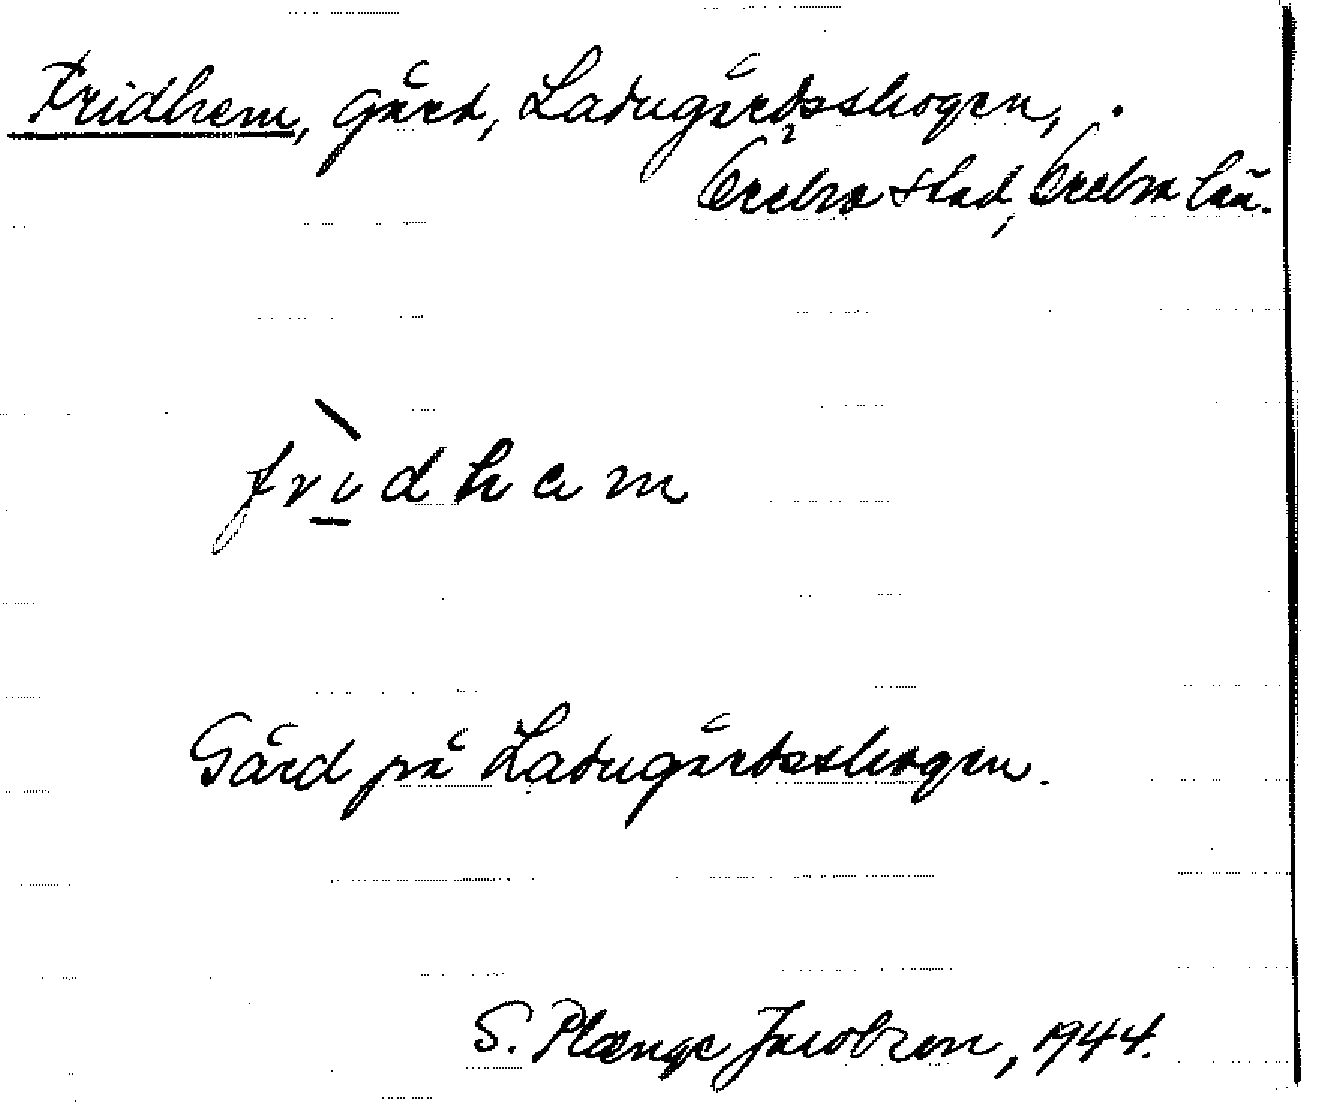 Fridhem, gård, Ladugårdsskogen,
Örebro stad, Örebro län.
frì̲dhem
Gård på Ladugårdsskogen.
S. Plænge Jacobson, 1944.